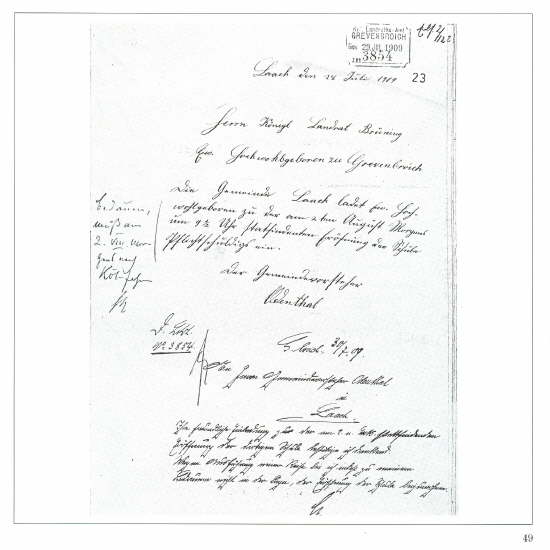 Kg. Landraths-Amt
GREVENBROICH
Eing. 29 JUL 1909
3854
23
Laach den 28 Juli 1909
Herrn Königl Landrat Brüning
Ew. Hochwohlgeboren zu Grevenbroich
Die Gemeinde Laach ladet Ew. Hoch-
wohlgeboren zu der am 2ten August Morgens
um 9½ Uhr stattfindenten Eröfnung der Schule
Pflichtschuldigs ein.
Bedaure,
muß am
2. Vor-
Köln
Der Gemeindevorsteher
Odenthal
No 3854.
30/7.09.
An Herrn Gemeindevorsteher Odenthal
in
Laach.
Die freundliche Einladung zu der am 2. stattfindenden
Eröffnung der dortigen Schule bestätige ich dankend.
Wegen einer Reise bin ich zu meinem
Bedauern nicht in der Lage, der Eröffnung der Schule beizuwohnen.
49